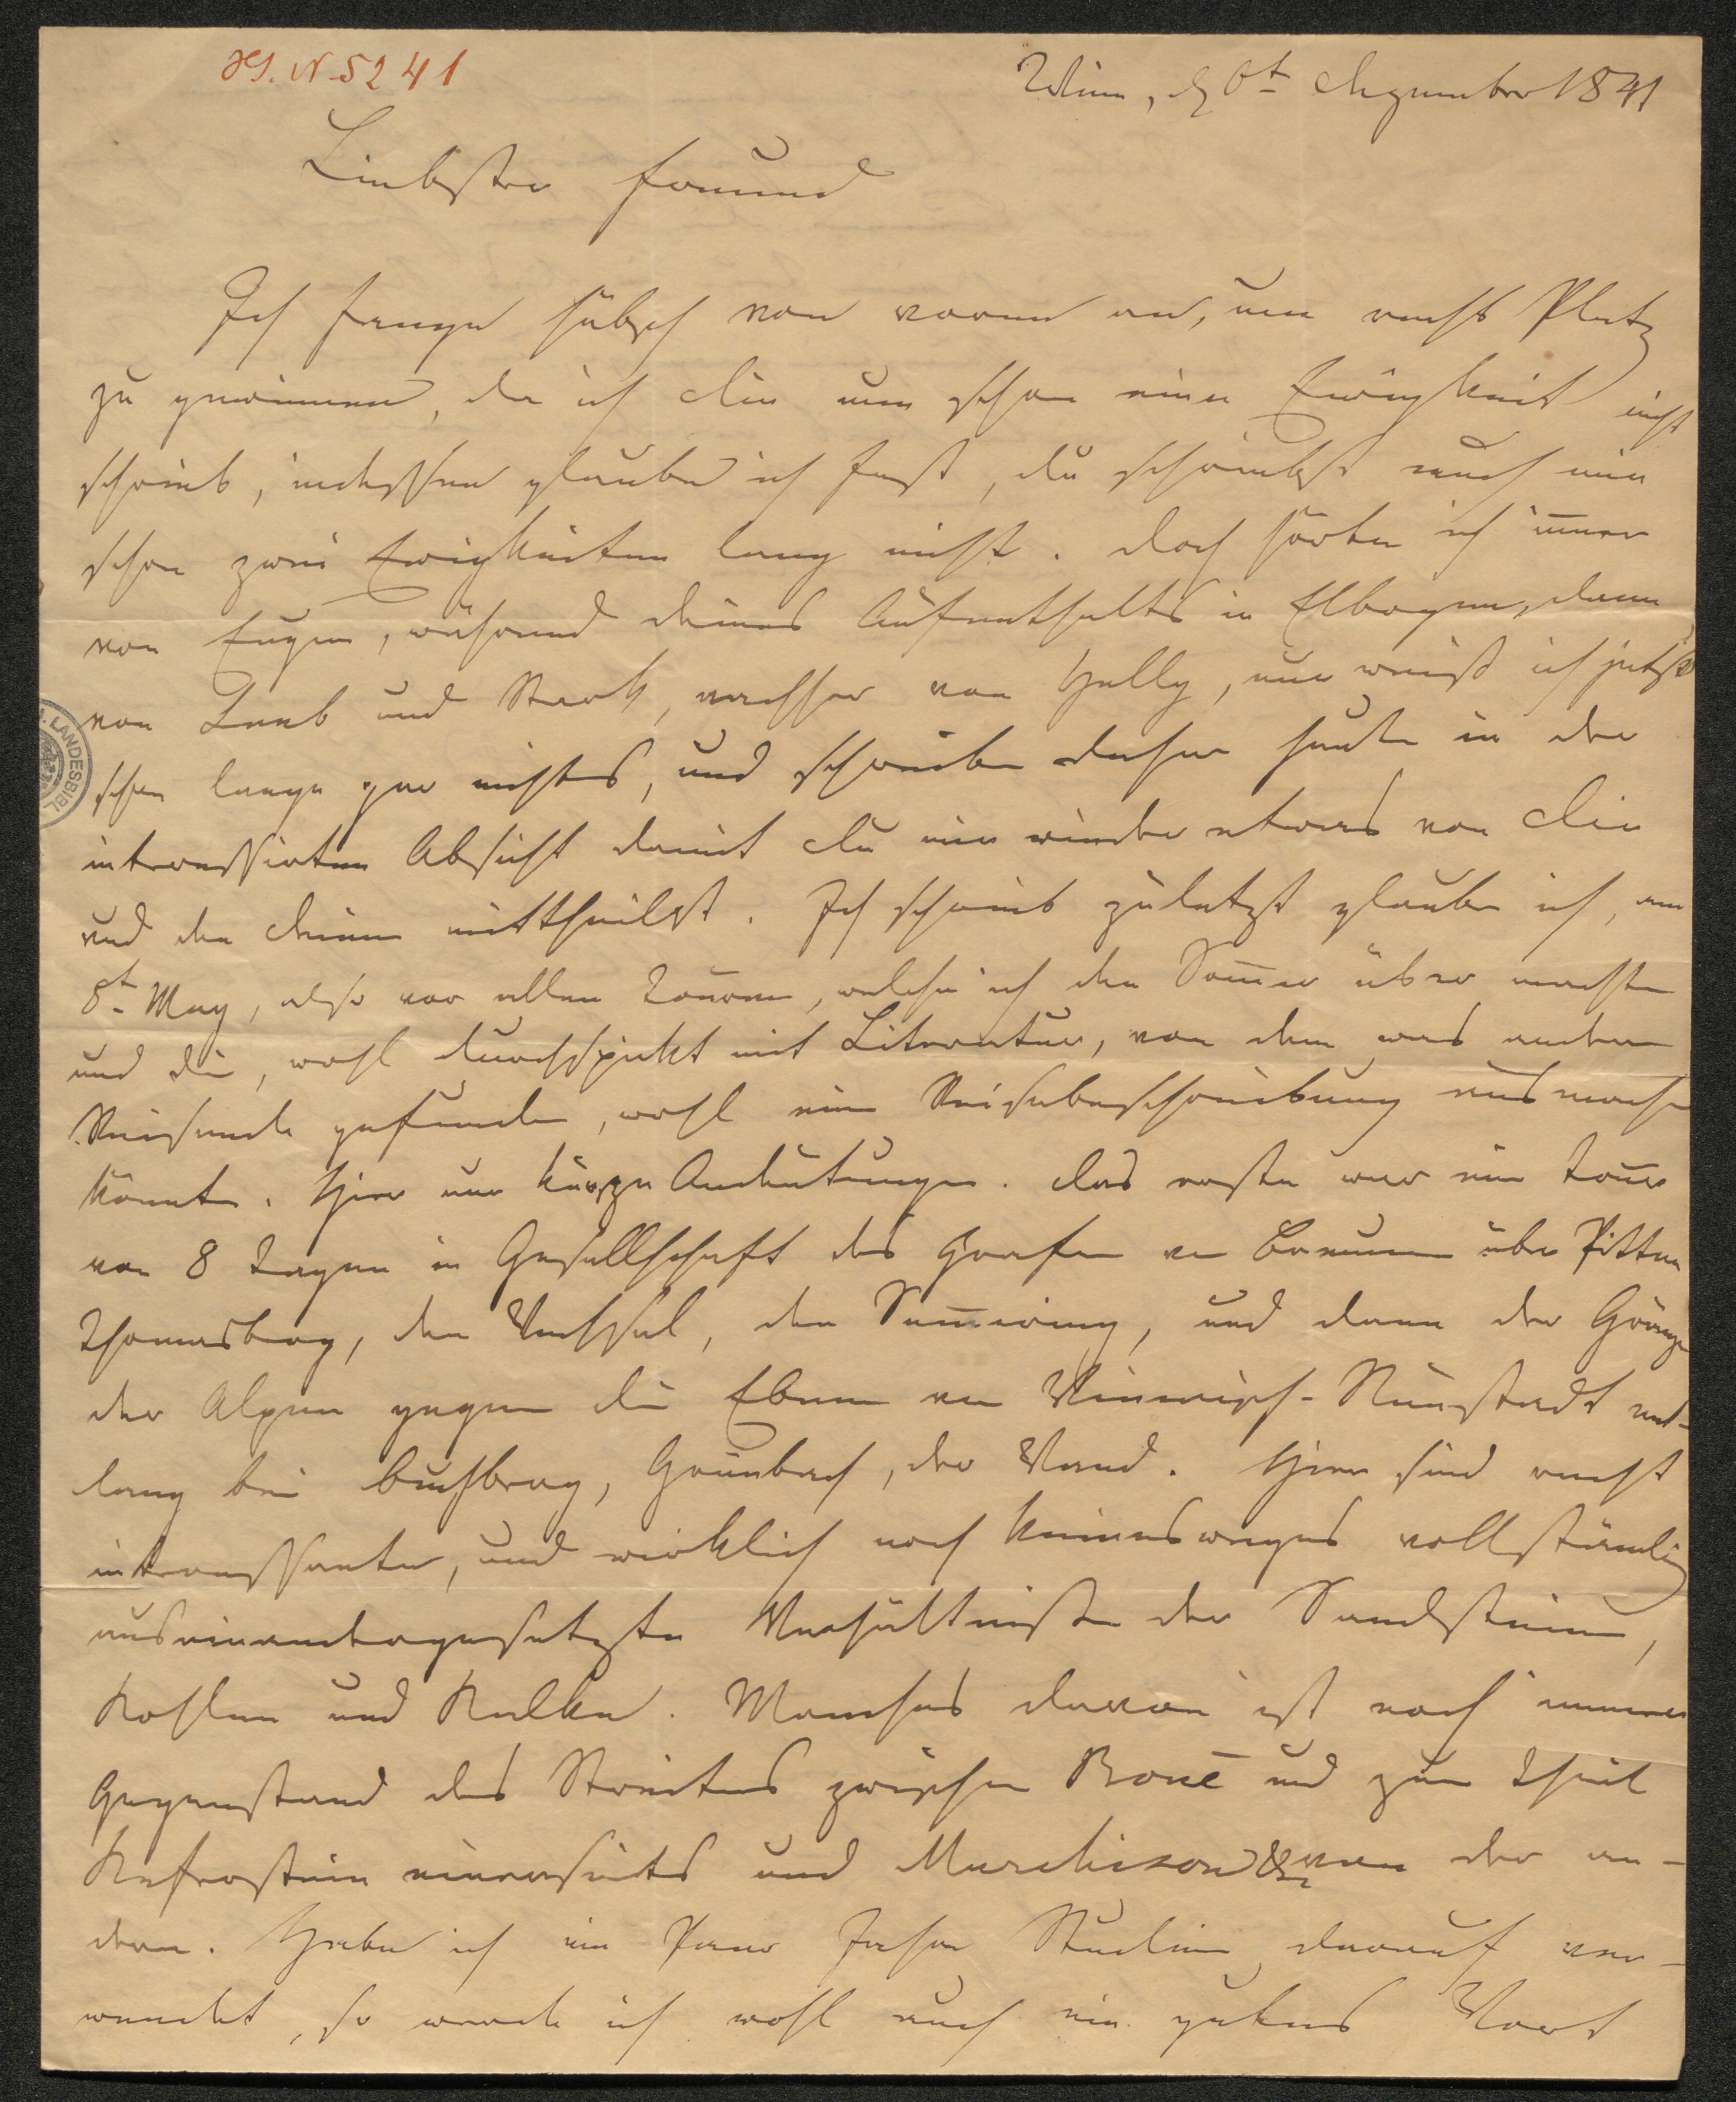 HS. N. 5241
Wien, d 6t Dezember 1841
Liebster Freund
Ich fange hübsch von vorne an, um recht Platz
zu gewinnen, da ich Dir nun schon eine Ewigkeit nicht
schrieb, indessen glaube ich fast, du schriebst auch mir
schon zwei Ewigkeiten lang nicht. Doch hörte ich im̄er
von Eugen, während deines Aufenthalts in Elbogen, dann
von Leeb und Stark, nachher von Helly, nun weiß ich jetzt
schon lange gar nichts, und schreibe daher heute in der
interessirten Absicht damit Du mir wieder etwas von Dir
und den Deinen mittheilst. Ich schrieb zuletzt glaube ich, am
8t May, also vor allen Touren, welche ich den Som̄er über machte
und die, wohl durchspickt mit Literatur, von dem was andere
Reisende gefunden, wohl eine Reisebeschreibung ausmachen
könnte. Hier nur kurze Andeutungen. Das erste war eine Tour
von 8 Tagen in Gesellschaft des Grafen von Breunner über Pitten
Thomasberg, den Wechsel, den Sem̄ering, und dann der Gränze
der Alpen gegen die Ebene von Wienerisch-Neustadt ent-
lang bei Buchberg, Grünbach, der Wand. Hier sind recht
interessante, und wirklich noch keineswegs vollständig
auseinandergesetzte Verhältnisse der Sandsteine,
Kohlen und Kalke. Manches davon ist noch immer
Gegenstand des Streites zwischen Boué und zum Theil
Keferstein einerseits und Murchison &c von der an-
dern. Habe ich ein Paar Jahre Studien darauf ver-
wendet, so werde ich wohl auch ein gutes Wort
LANDESBIBL